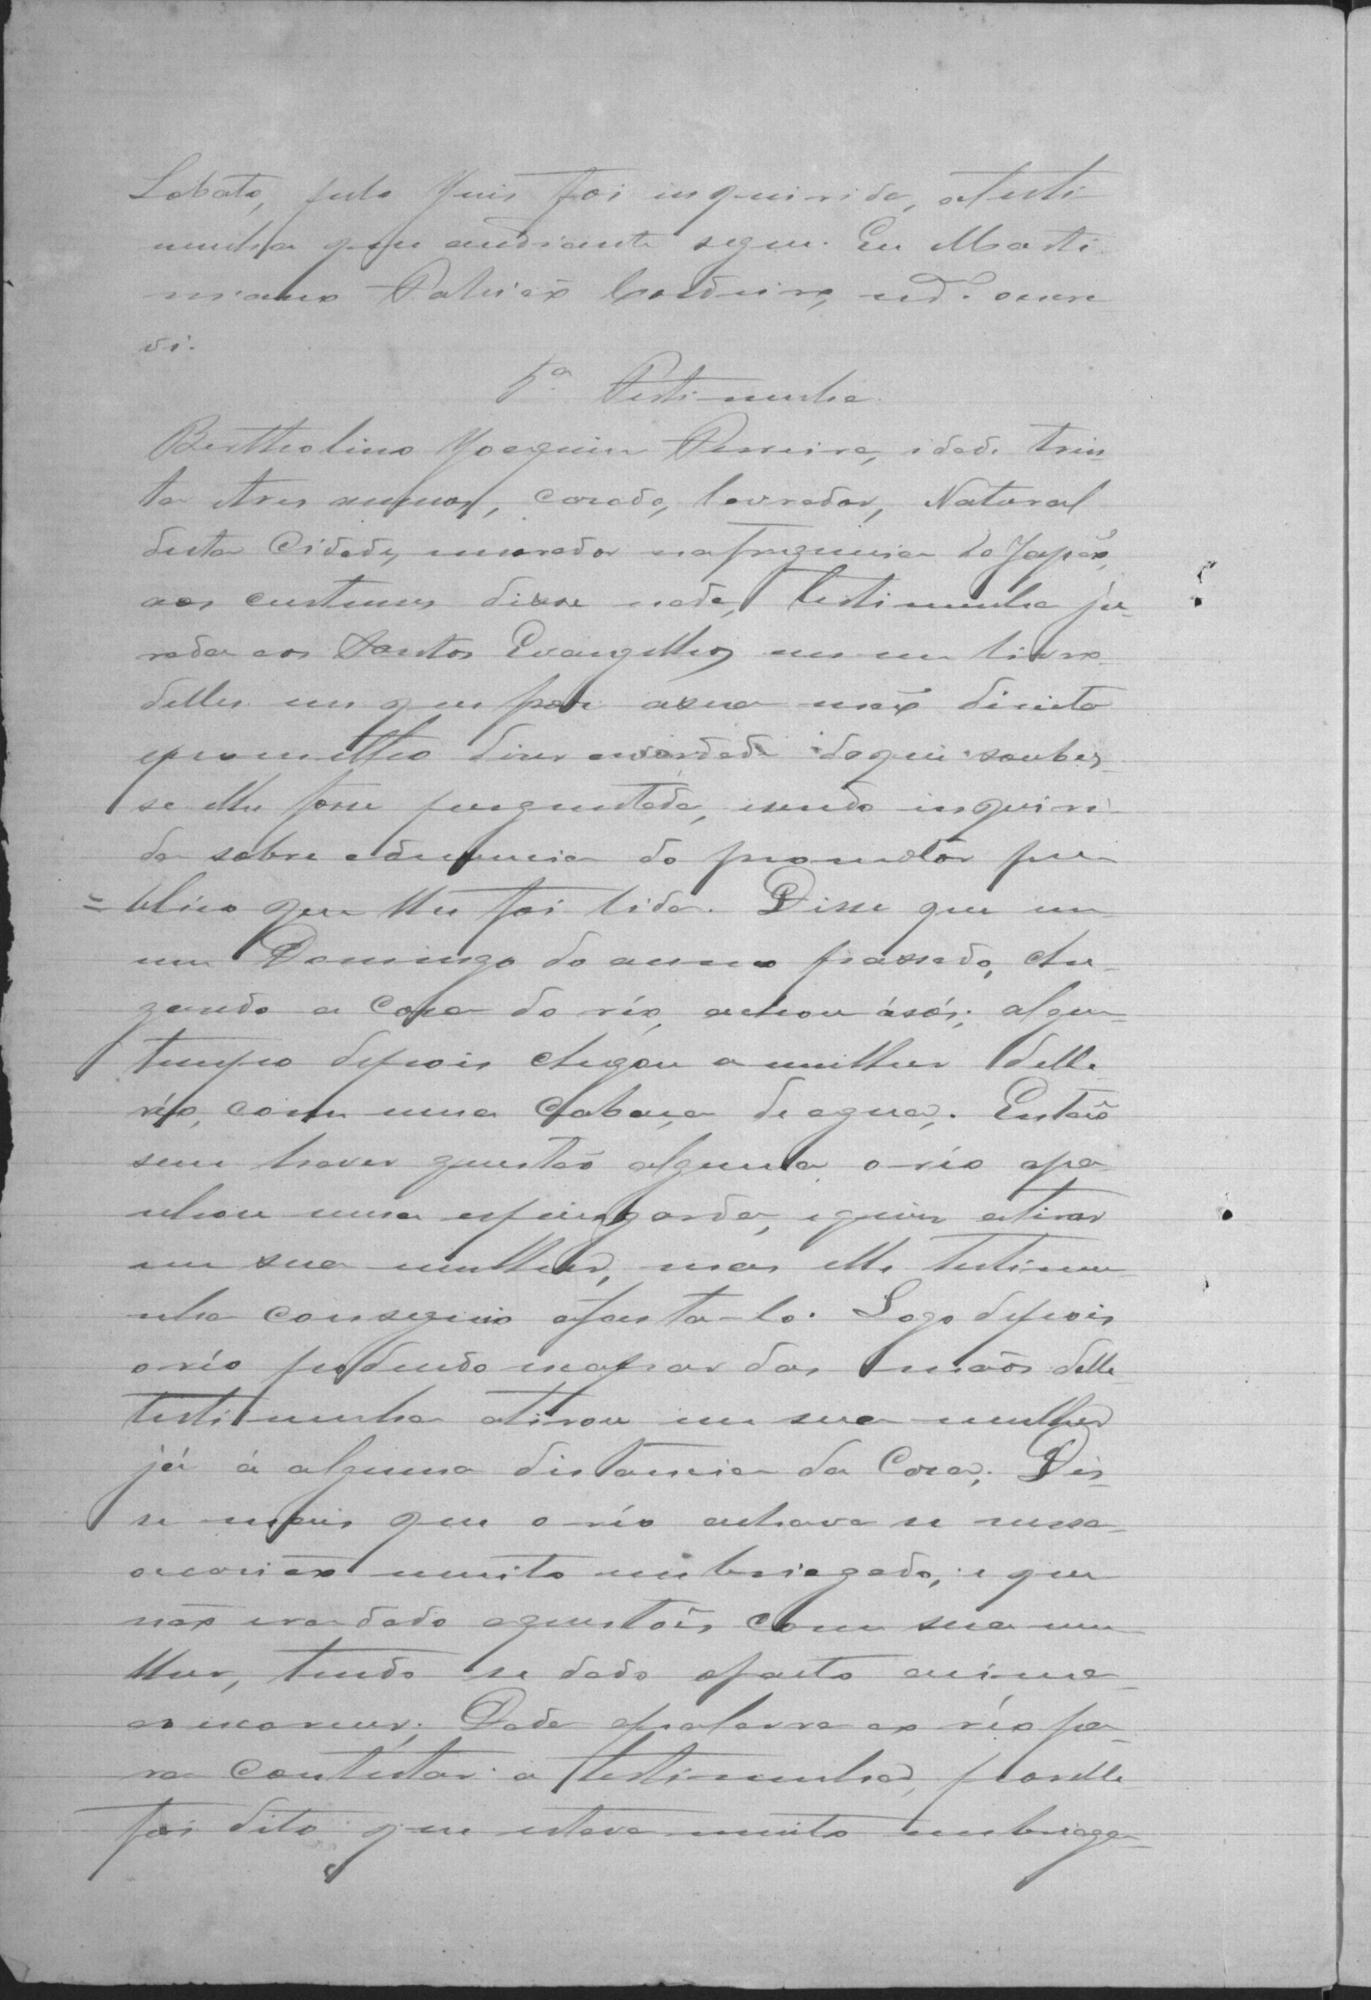 Lobato, pelo Juis foi inquirida, atesti
munha que andiante segue. Eu Marti
niano Patricio Cordeiro, escre
vi.
5ª Testimunha
Bertholino Joaquim Ferreira, idade trin
ta etres annos, casado, lavrador, Natural
desta Cidade, morador nafreguesia do Japão,
aos custumes disse nada, testimunha ju-
rada aos Santos Evangelhos em um livro
delles em que por asua mão direita
eprometteo diser averdade doque soubes
se elhe fosse perguntado, esendo inquiri
da sobre adenuncia do promotor pu
= blico que lhe foi lida. Disse que em
um Domingo do anno passado, che-
gando a casa do réo, achou ásós; algum
tempo depois chegou a mulher delle
réo, com uma Cabaça de agua. Então
sem haver questão alguma, o réo apa
nhou uma espingarda, equis atirar
em sua mulher, mas elle testimu-
nha conseguio afasta-lo. Logo depois
o réo podendo escapar das mãos delle
testimunha atirou em sua mulher
já á alguma distancia da Casa. Dis-
se mais que o réo achava se nessa
occasião muito embriagado, e que
não era dado aquestões com sua mu
lher, tendo se dado ofacto
Dada apalavra ao réo pa-
ra contestar a testimunha, porelle
foi dito que estava muito embriaga-